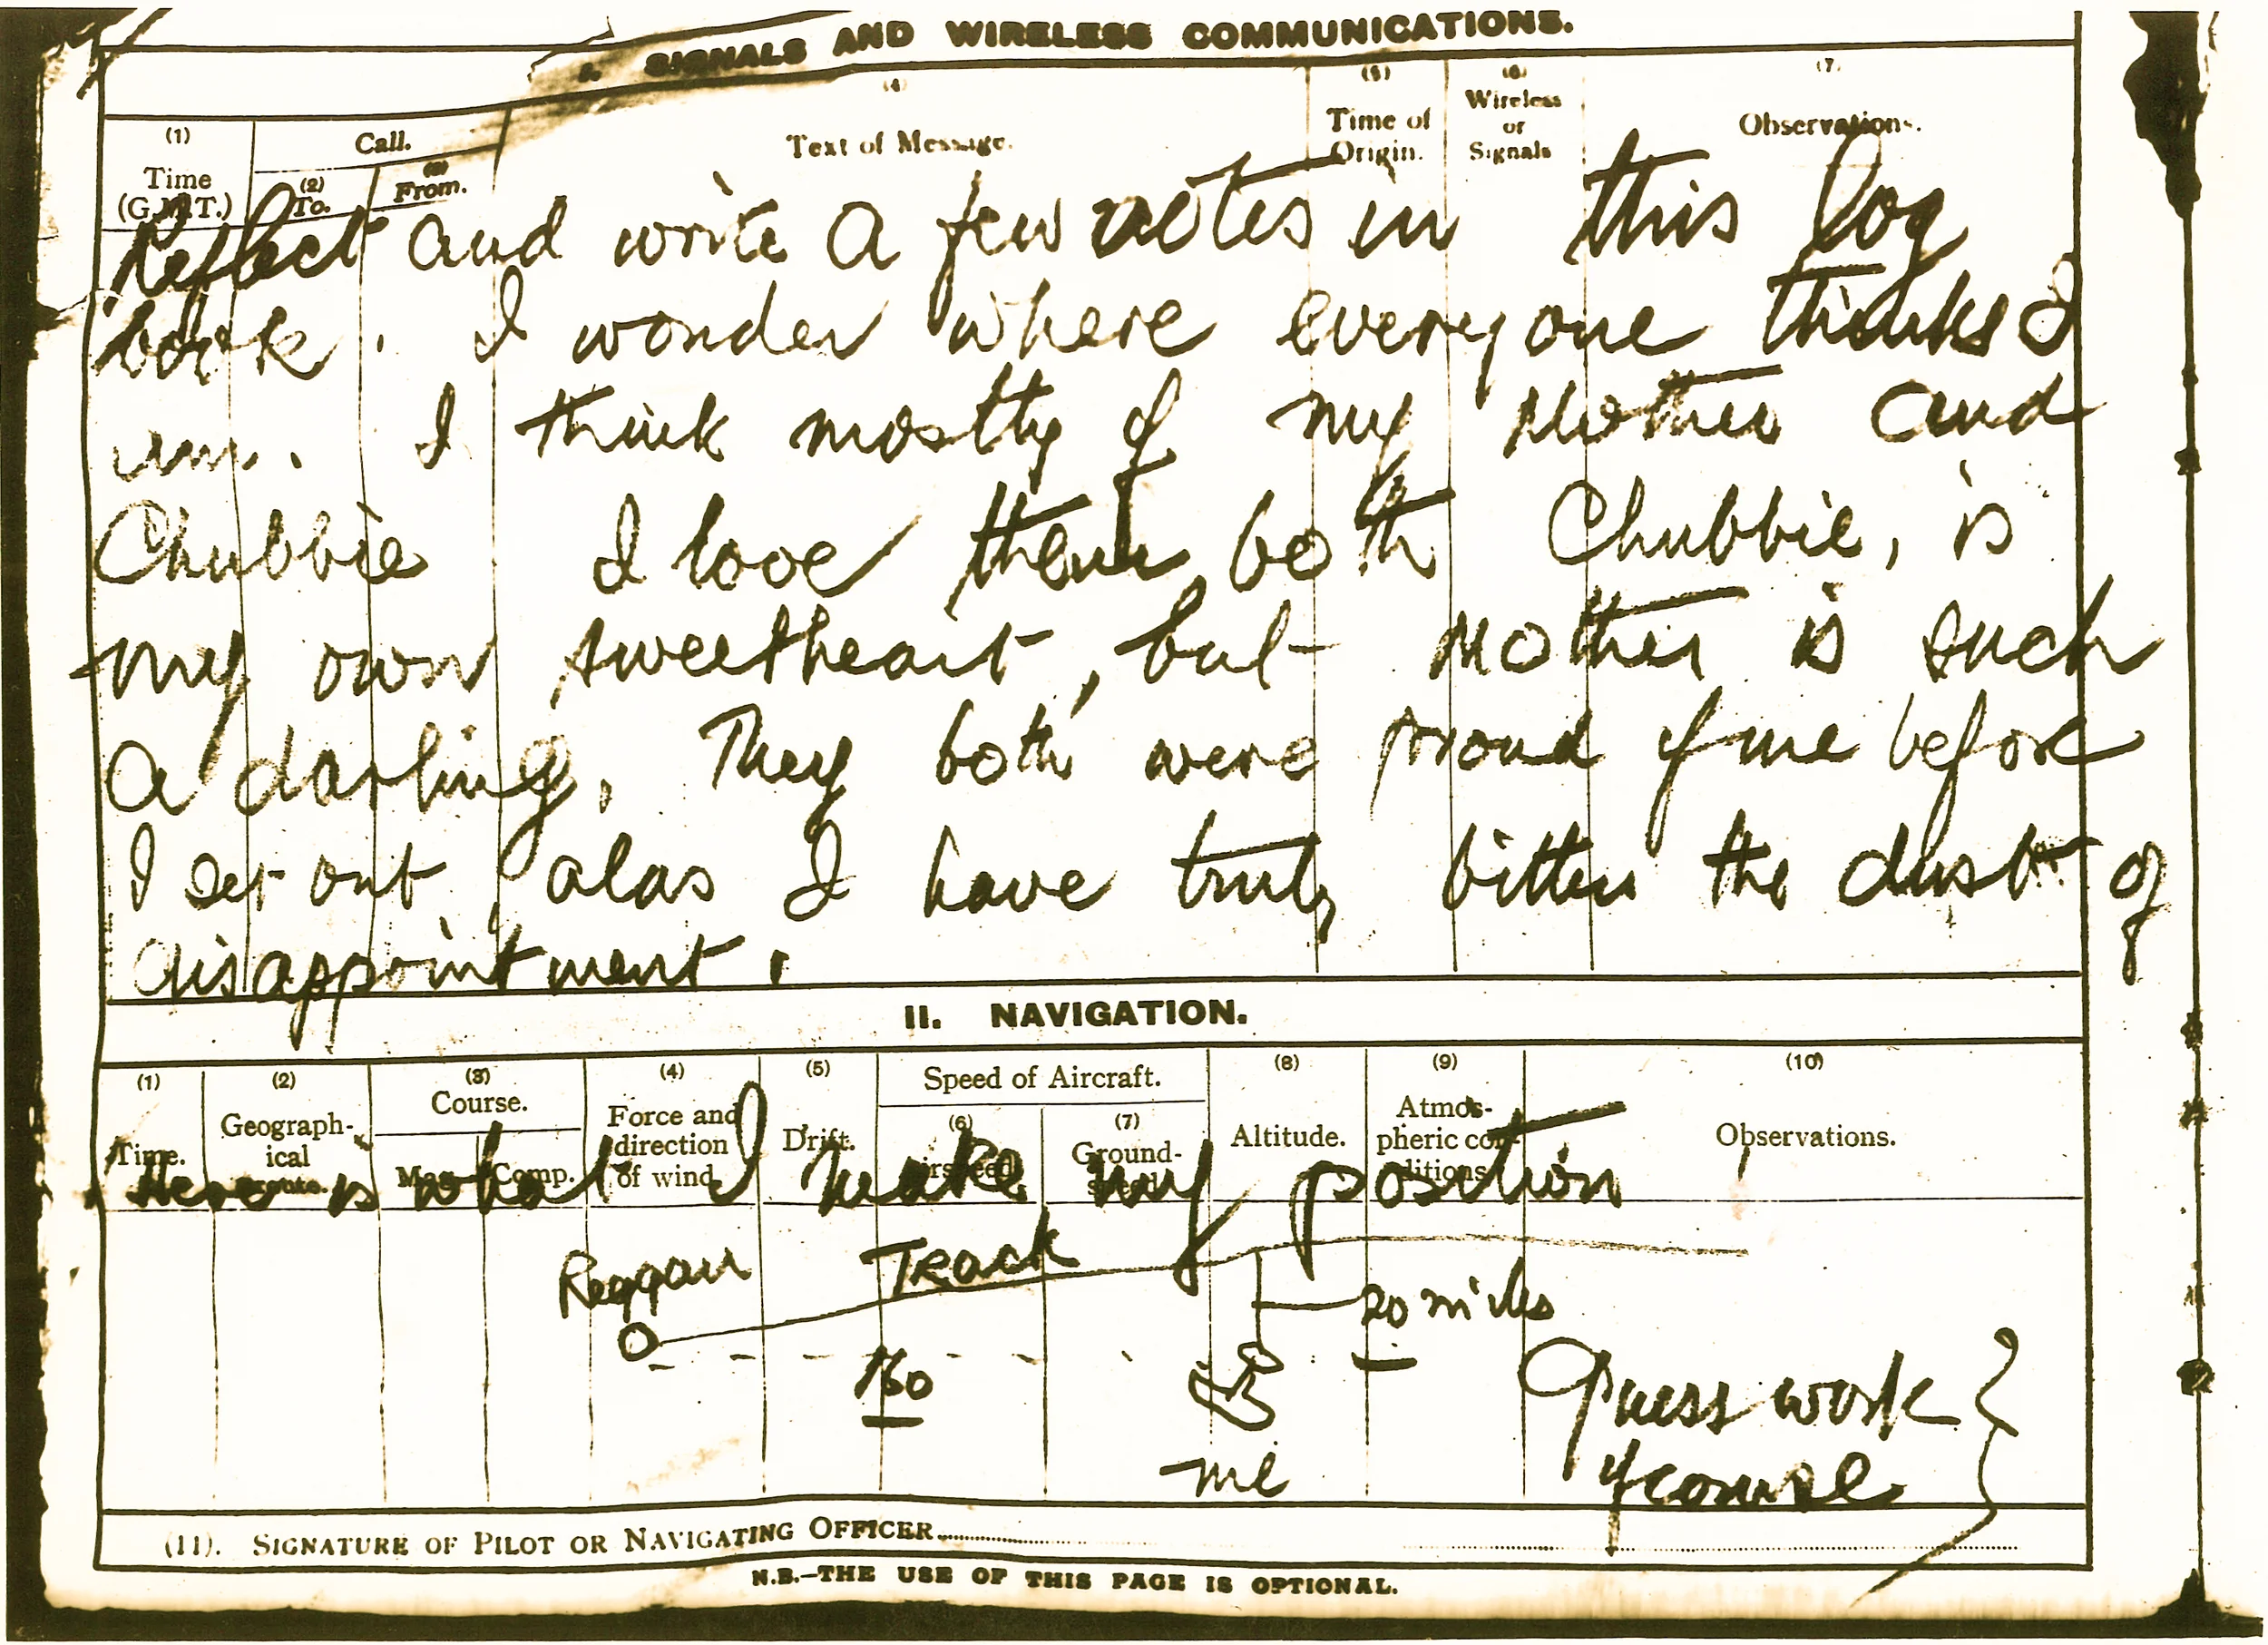 I. SIGNALS AND WIRELESS COMMUNICATIONS.
(1) Time (G.M.T.)
Call.
(2) To.
(3) From.
(4) Text of Message.
(5) Time of Origin.
(6) Wireless or Signals
(7) Observations.
Reflect and write a few notes in this log
book. I wonder where everyone thinks I
am. I think mostly of my Mother and
Chubbie I love them both Chubbie, is
my own sweetheart, but Mother is such
a darling. They both were proud of me before
I set out, alas I have truly bitten the dust of
disappointment.
II. NAVIGATION.
(1) Time.
(2) Geograph-ical route.
(3) Course.
Mag. Comp.
(4) Force and direction of wind
(5) Drift.
Speed of Aircraft.
(6) Airspeed
(7) Ground-speed
(8) Altitude.
(9) Atmos-pheric con-ditions
(10) Observations.
Here is what I make my position
Reggan Track
20 miles
160
Guess work
of course
me
(11). SIGNATURE OF PILOT OR NAVIGATING OFFICER
N.B.—THE USE OF THIS PAGE IS OPTIONAL.